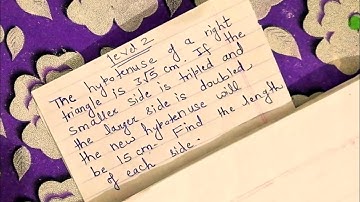 level 2
The hypotenuse of a right
triangle is 3√5 cm. If the
smaller side is tripled and
the larger side is doubled,
the new hypotenuse will
be 15 cm. Find the length
of each side.